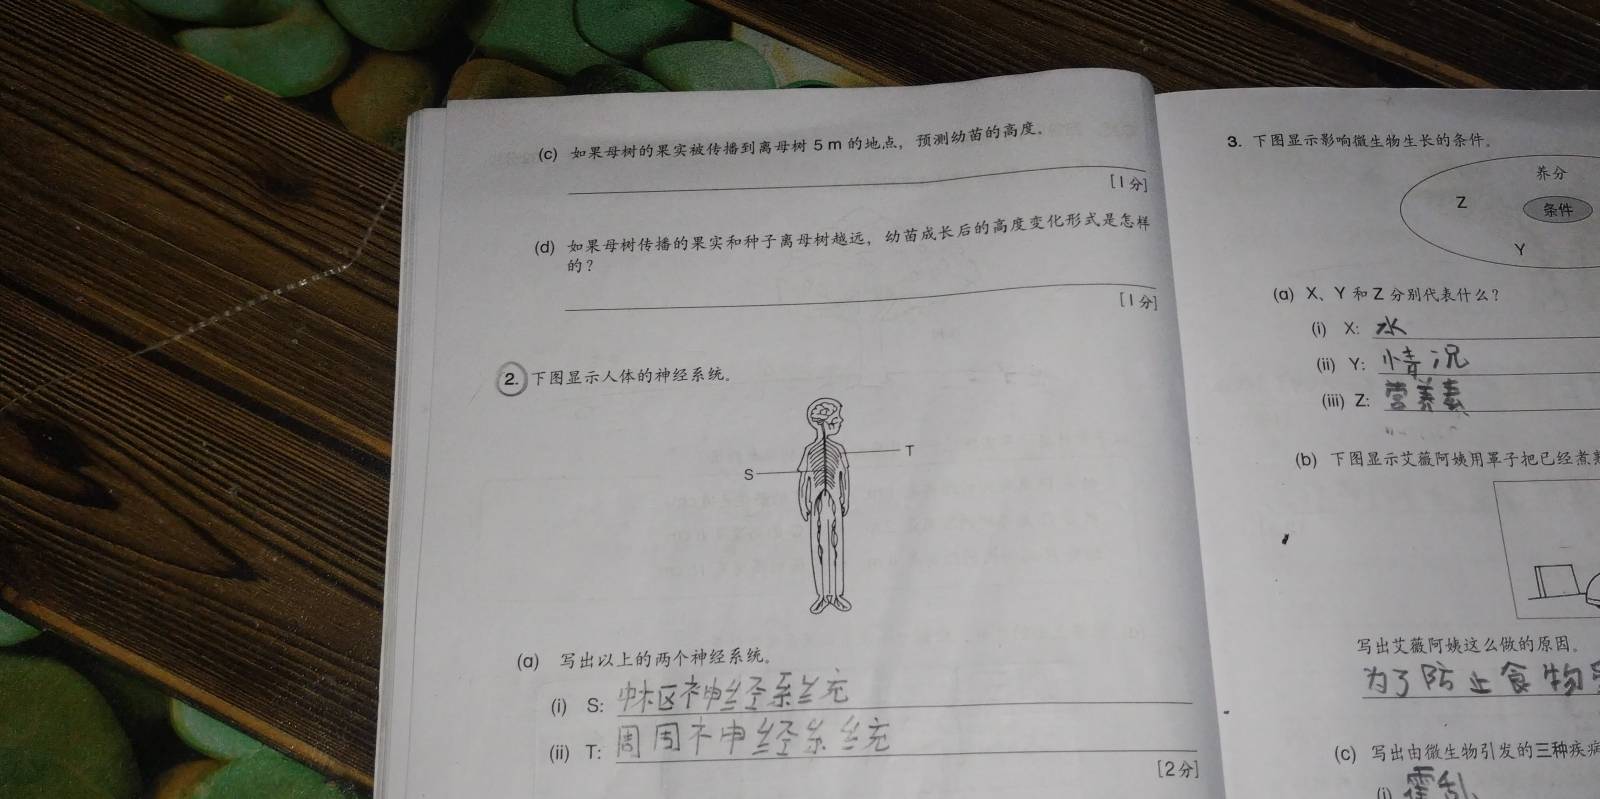 (c) 如果母树的果实被传播到离母树 5 m 的地点，预测幼苗的高度。
[1分]
(d) 如果母树传播的果实和种子离母树越远，幼苗成长后的高度变化形式是怎样
的？
[1分]
2. 下图显示人体的神经系统。
T
S
(a) 写出以上的两个神经系统。
(i) S: 中枢神经系统
(ii) T: 周围神经系统
[2分]
3. 下图显示影响微生物生长的条件。
养分
Z
条件
Y
(a) X、Y 和 Z 分别代表什么？
(i) X: 水
(ii) Y: 情况
(iii) Z: 营养素
(b) 下图显示艾薇阿姨用罩子把已经煮
写出艾薇阿姨这么做的原因。
为了防止食物
(c) 写出由微生物引发的三种疾病
(i) 霍乱